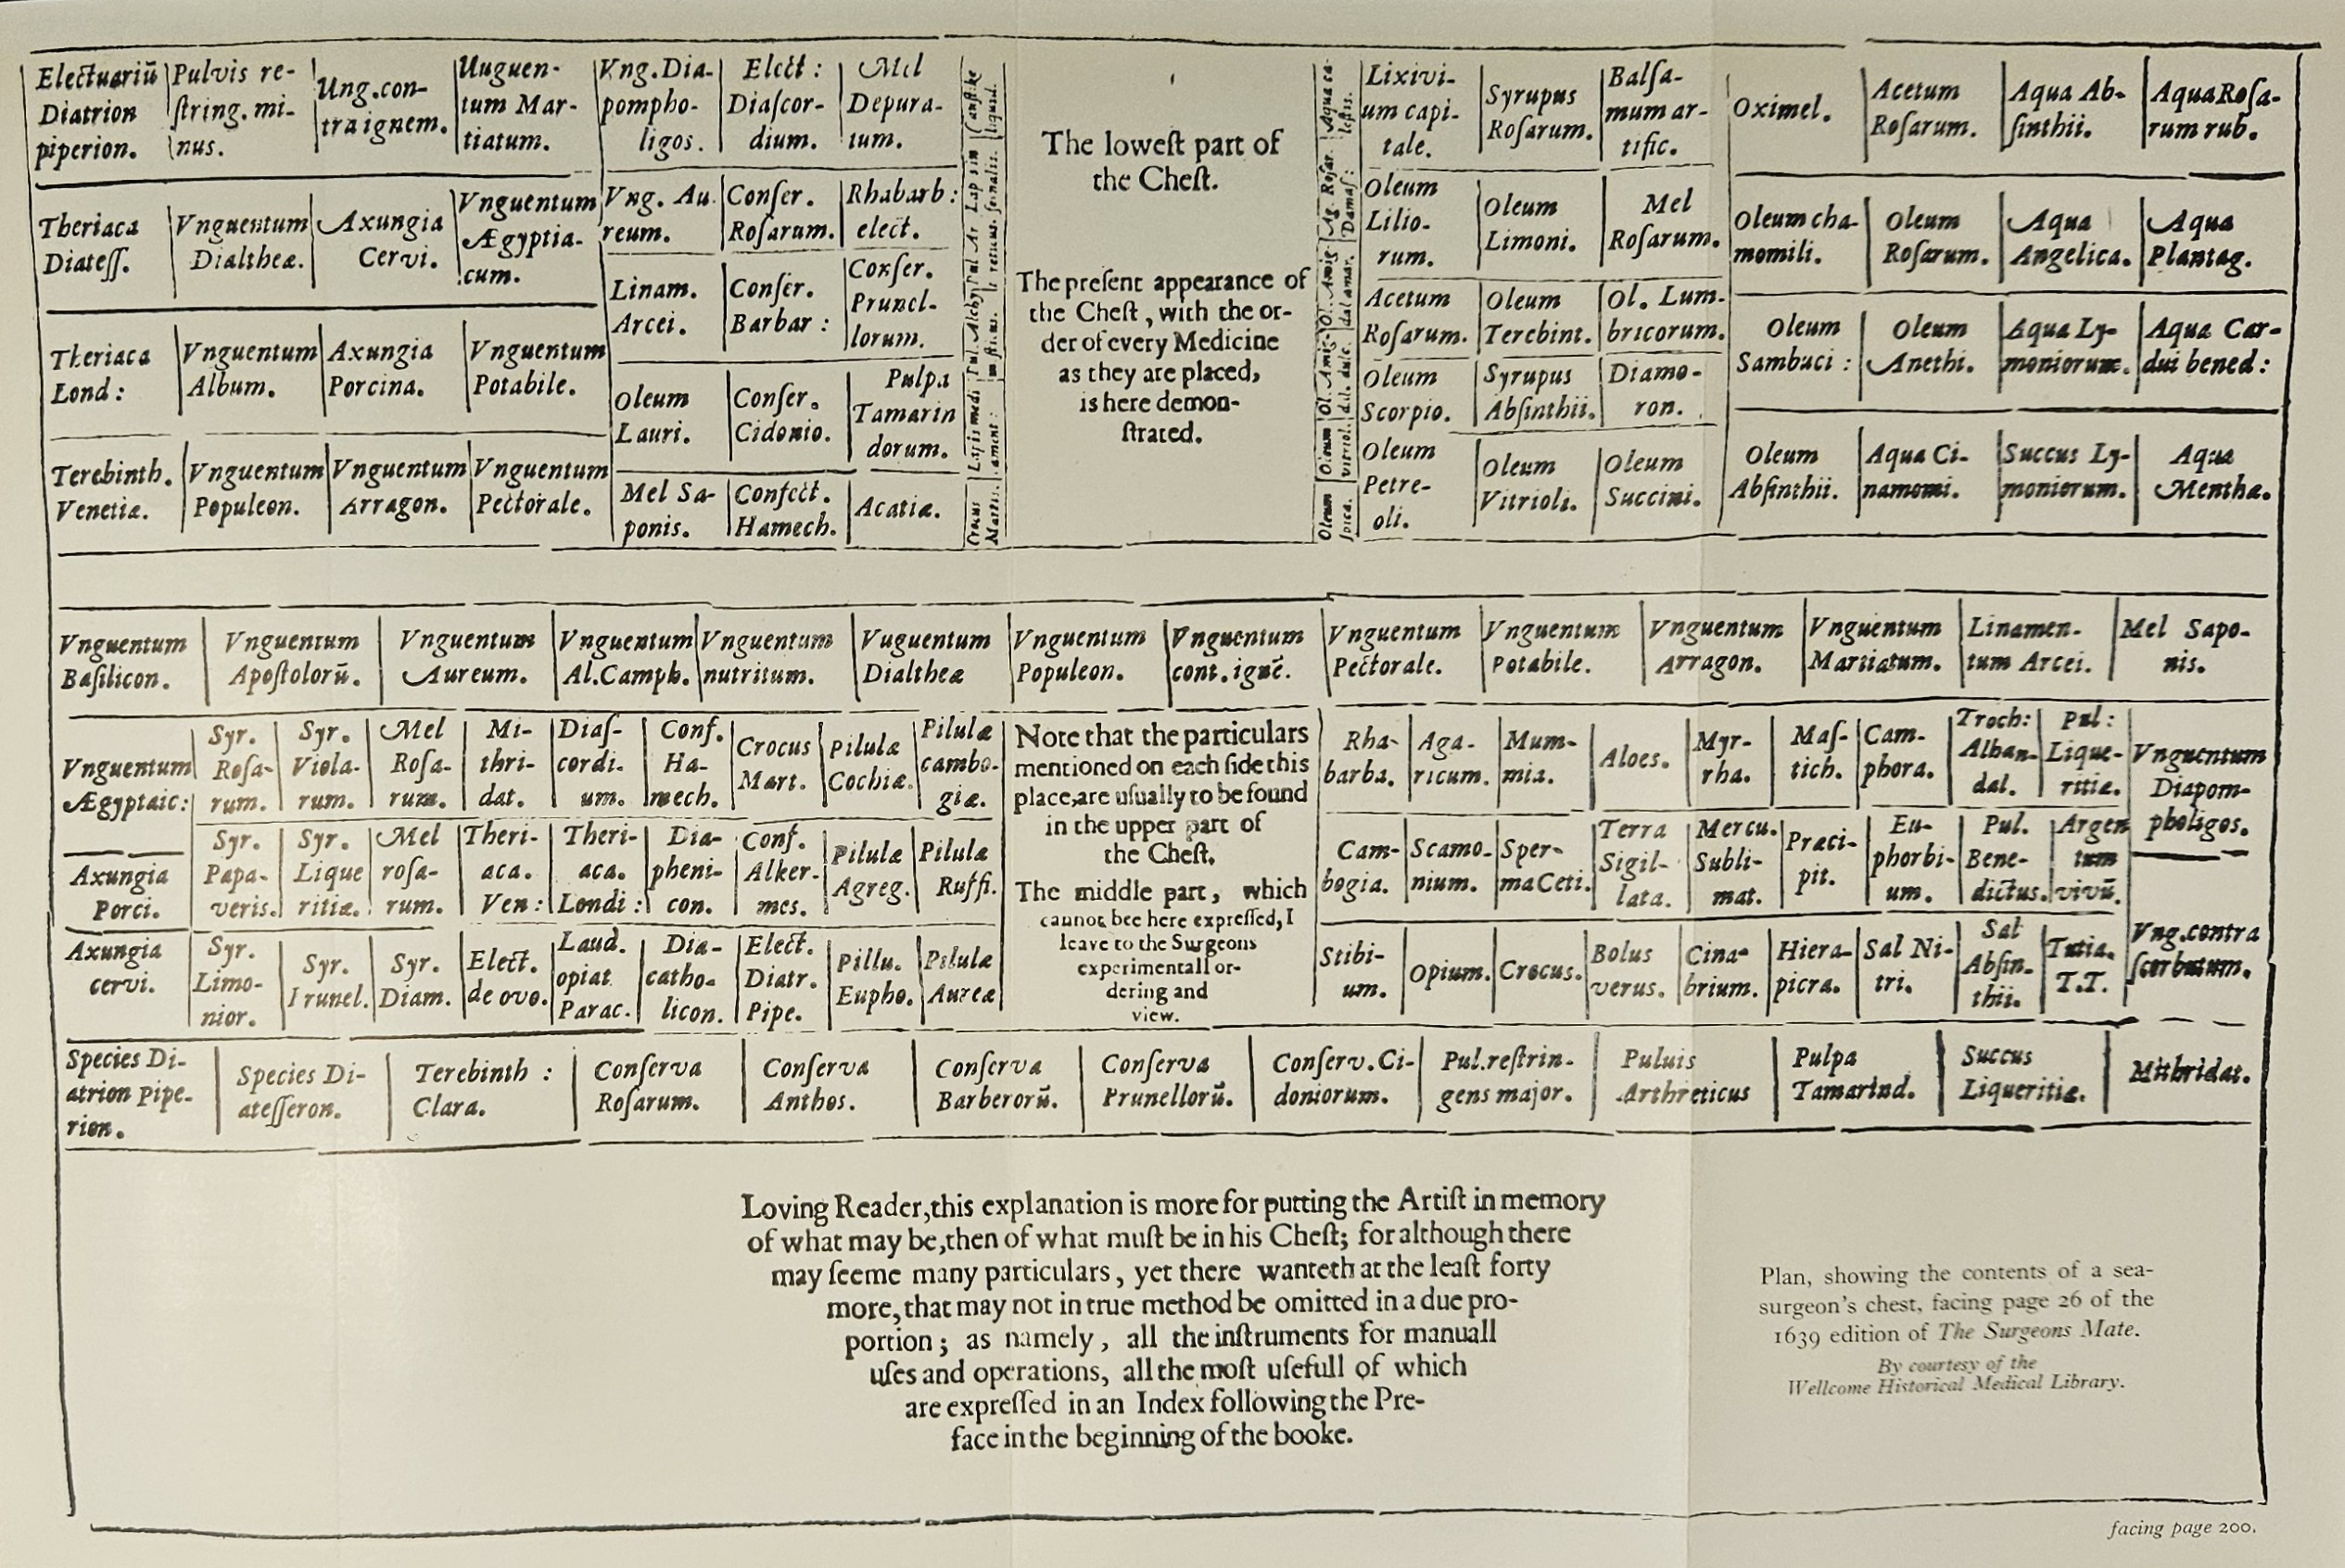 Electuariū
Diatrion
piperion.
Pulvis re-
ſtring. mi-
nus.
Ung.con-
tra ignem.
Unguen-
tum Mar-
tiatum.
Vng.Dia-
pompho-
ligos.
Elect :
Diaſcor-
dium.
Mel
Depura-
tum.
Theriaca
Diateſſ.
Vnguentum
Dialtheæ.
Axungia
Cervi.
Vnguentum
Ægyptia-
cum.
Vng. Au
reum.
Conſer.
Roſarum.
Rhabarb :
elect.
Linam.
Arcei.
Conſer.
Barbar :
Conſer.
Prunel-
lorum.
Theriaca
Lond :
Vnguentum
Album.
Axungia
Porcina.
Vnguentum
Potabile.
Oleum
Lauri.
Conſer.
Cidonio.
Pulpa
Tamarin
dorum.
Terebinth.
Venetiæ.
Vnguentum
Populeon.
Vnguentum
Arragon.
Vnguentum
Pectorale.
Mel Sa-
ponis.
Confect.
Hamech.
Acatiæ.
Crocus
Martis.
Lapis medi
ament :
The loweſt part of
the Cheſt.
The preſent appearance of
the Cheſt, with the or-
der of every Medicine
as they are placed,
is here demon-
ſtrated.
Oleum
ſpica.
Oleum
vitriol.
Aq. Roſar.
Damaſ:
Aqua cæ-
leſtis.
Lixivi-
um capi-
tale.
Syrupus
Roſarum.
Balſa-
mum ar-
tific.
Oleum
Lilio-
rum.
Oleum
Limoni.
Mel
Roſarum.
Acetum
Roſarum.
Oleum
Terebint.
Ol. Lum-
bricorum.
Oleum
Scorpio.
Syrupus
Abſinthii.
Diamo-
ron.
Oleum
Petre-
oli.
Oleum
Vitrioli.
Oleum
Succini.
Oximel.
Acetum
Roſarum.
Aqua Ab-
ſinthii.
Aqua Roſa-
rum rub.
Oleum cha-
momili.
Oleum
Roſarum.
Aqua
Angelica.
Aqua
Plantag.
Oleum
Sambuci :
Oleum
Anethi.
Aqua Ly-
moniorum.
Aqua Car-
dui bened :
Oleum
Abſinthii.
Aqua Ci-
namomi.
Succus Ly-
moniorum.
Aqua
Menthæ.
Vnguentum
Baſilicon.
Vnguentum
Apoſtolorū.
Vnguentum
Aureum.
Vnguentum
Al.Camph.
Vnguentum
nutritum.
Vuguentum
Dialtheæ
Vnguentum
Populeon.
Vnguentum
cont.ignē.
Vnguentum
Pectorale.
Vnguentum
Potabile.
Vnguentum
Arragon.
Vnguentum
Martiatum.
Linamen-
tum Arcei.
Mel Sapo-
nis.
Vnguentum
Ægyptaic:
Syr.
Roſa-
rum.
Syr.
Viola-
rum.
Mel
Roſa-
rum.
Mi-
thri-
dat.
Diaſ-
cordi-
um.
Conf.
Ha-
mech.
Crocus
Mart.
Pilulæ
Cochiæ.
Pilulæ
cambo-
giæ.
Axungia
Porci.
Syr.
Papa-
veris.
Syr.
Lique
ritiæ.
Mel
roſa-
rum.
Theri-
aca.
Ven :
Theri-
aca.
Londi :
Dia-
pheni-
con.
Conf.
Alker-
mes.
Pilulæ
Agreg.
Pilulæ
Ruffi.
Axungia
cervi.
Syr.
Limo-
nior.
Syr.
Prunel.
Syr.
Diam.
Elect.
de ovo.
Laud.
opiat
Parac.
Dia-
catho-
licon.
Elect.
Diatr.
Pipe.
Pillu.
Eupho.
Pilulæ
Aureæ
Note that the particulars
mentioned on each ſide this
place,are uſually to be found
in the upper part of
the Cheſt.
The middle part, which
cannot bee here expreſſed, I
leave to the Surgeons
experimentall or-
dering and
view.
Rha-
barba.
Aga-
ricum.
Mum-
mia.
Aloes.
Myr-
rha.
Maſ-
tich.
Cam-
phora.
Troch:
Alban-
dal.
Pul :
Lique-
ritiæ.
Vnguentum
Diapom-
pholigos.
Cam-
bogia.
Scamo-
nium.
Sper-
ma Ceti.
Terra
Sigil-
lata.
Mercu.
Subli-
mat.
Præci-
pit.
Eu-
phorbi-
um.
Pul.
Bene-
dictus.
Argen
tum
vivū.
Stibi-
um.
Opium.
Crocus.
Bolus
verus.
Cina-
brium.
Hiera-
picra.
Sal Ni-
tri.
Sal
Abſin-
thii.
Tutia.
T.T.
Vng.contra
ſcorbutum.
Species Di-
atrion pipe-
rion.
Species Di-
ateſſeron.
Terebinth :
Clara.
Conſerva
Roſarum.
Conſerva
Anthos.
Conſerva
Barberorū.
Conſerva
Prunellorū.
Conſerv.Ci-
doniorum.
Pul.reſtrin-
gens major.
Puluis
Arthreticus
Pulpa
Tamarind.
Succus
Liqueritiæ.
Mithridat.
Loving Reader,this explanation is more for putting the Artiſt in memory
of what may be,then of what muſt be in his Cheſt; for although there
may ſeeme many particulars, yet there wanteth at the leaſt forty
more, that may not in true method be omitted in a due pro-
portion; as namely, all the inſtruments for manuall
uſes and operations, all the moſt uſefull of which
are expreſſed in an Index following the Pre-
face in the beginning of the booke.
Plan, showing the contents of a sea-
surgeon's chest, facing page 26 of the
1639 edition of The Surgeons Mate.
By courtesy of the
Wellcome Historical Medical Library.
facing page 200.